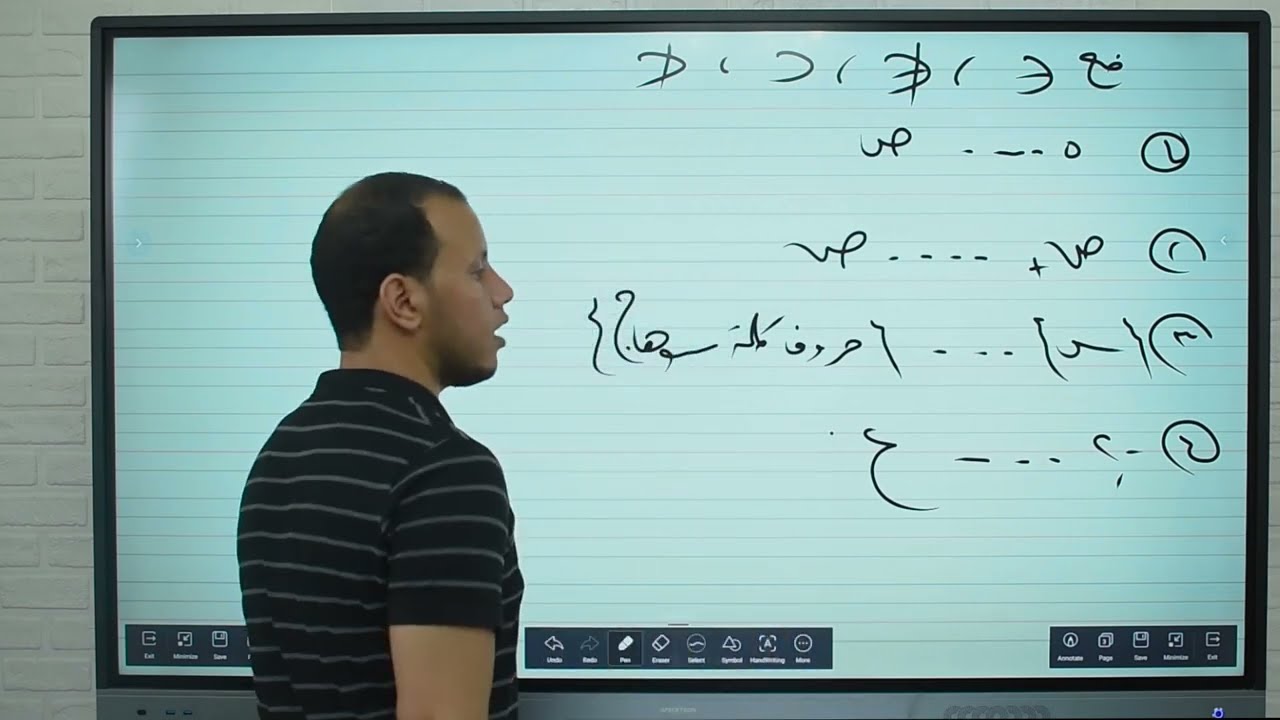 ضع ∋ ، ∌ ، ⊃ ، ⊅
① ٥ .... ص
② ص+ .... ص
③ {س} .... {حروف كلمة سوهاج}
④ .... ع
Exit Minimize Save Undo Redo Pen Eraser Select Symbol HandWriting More Annotate Page Save Minimize Exit